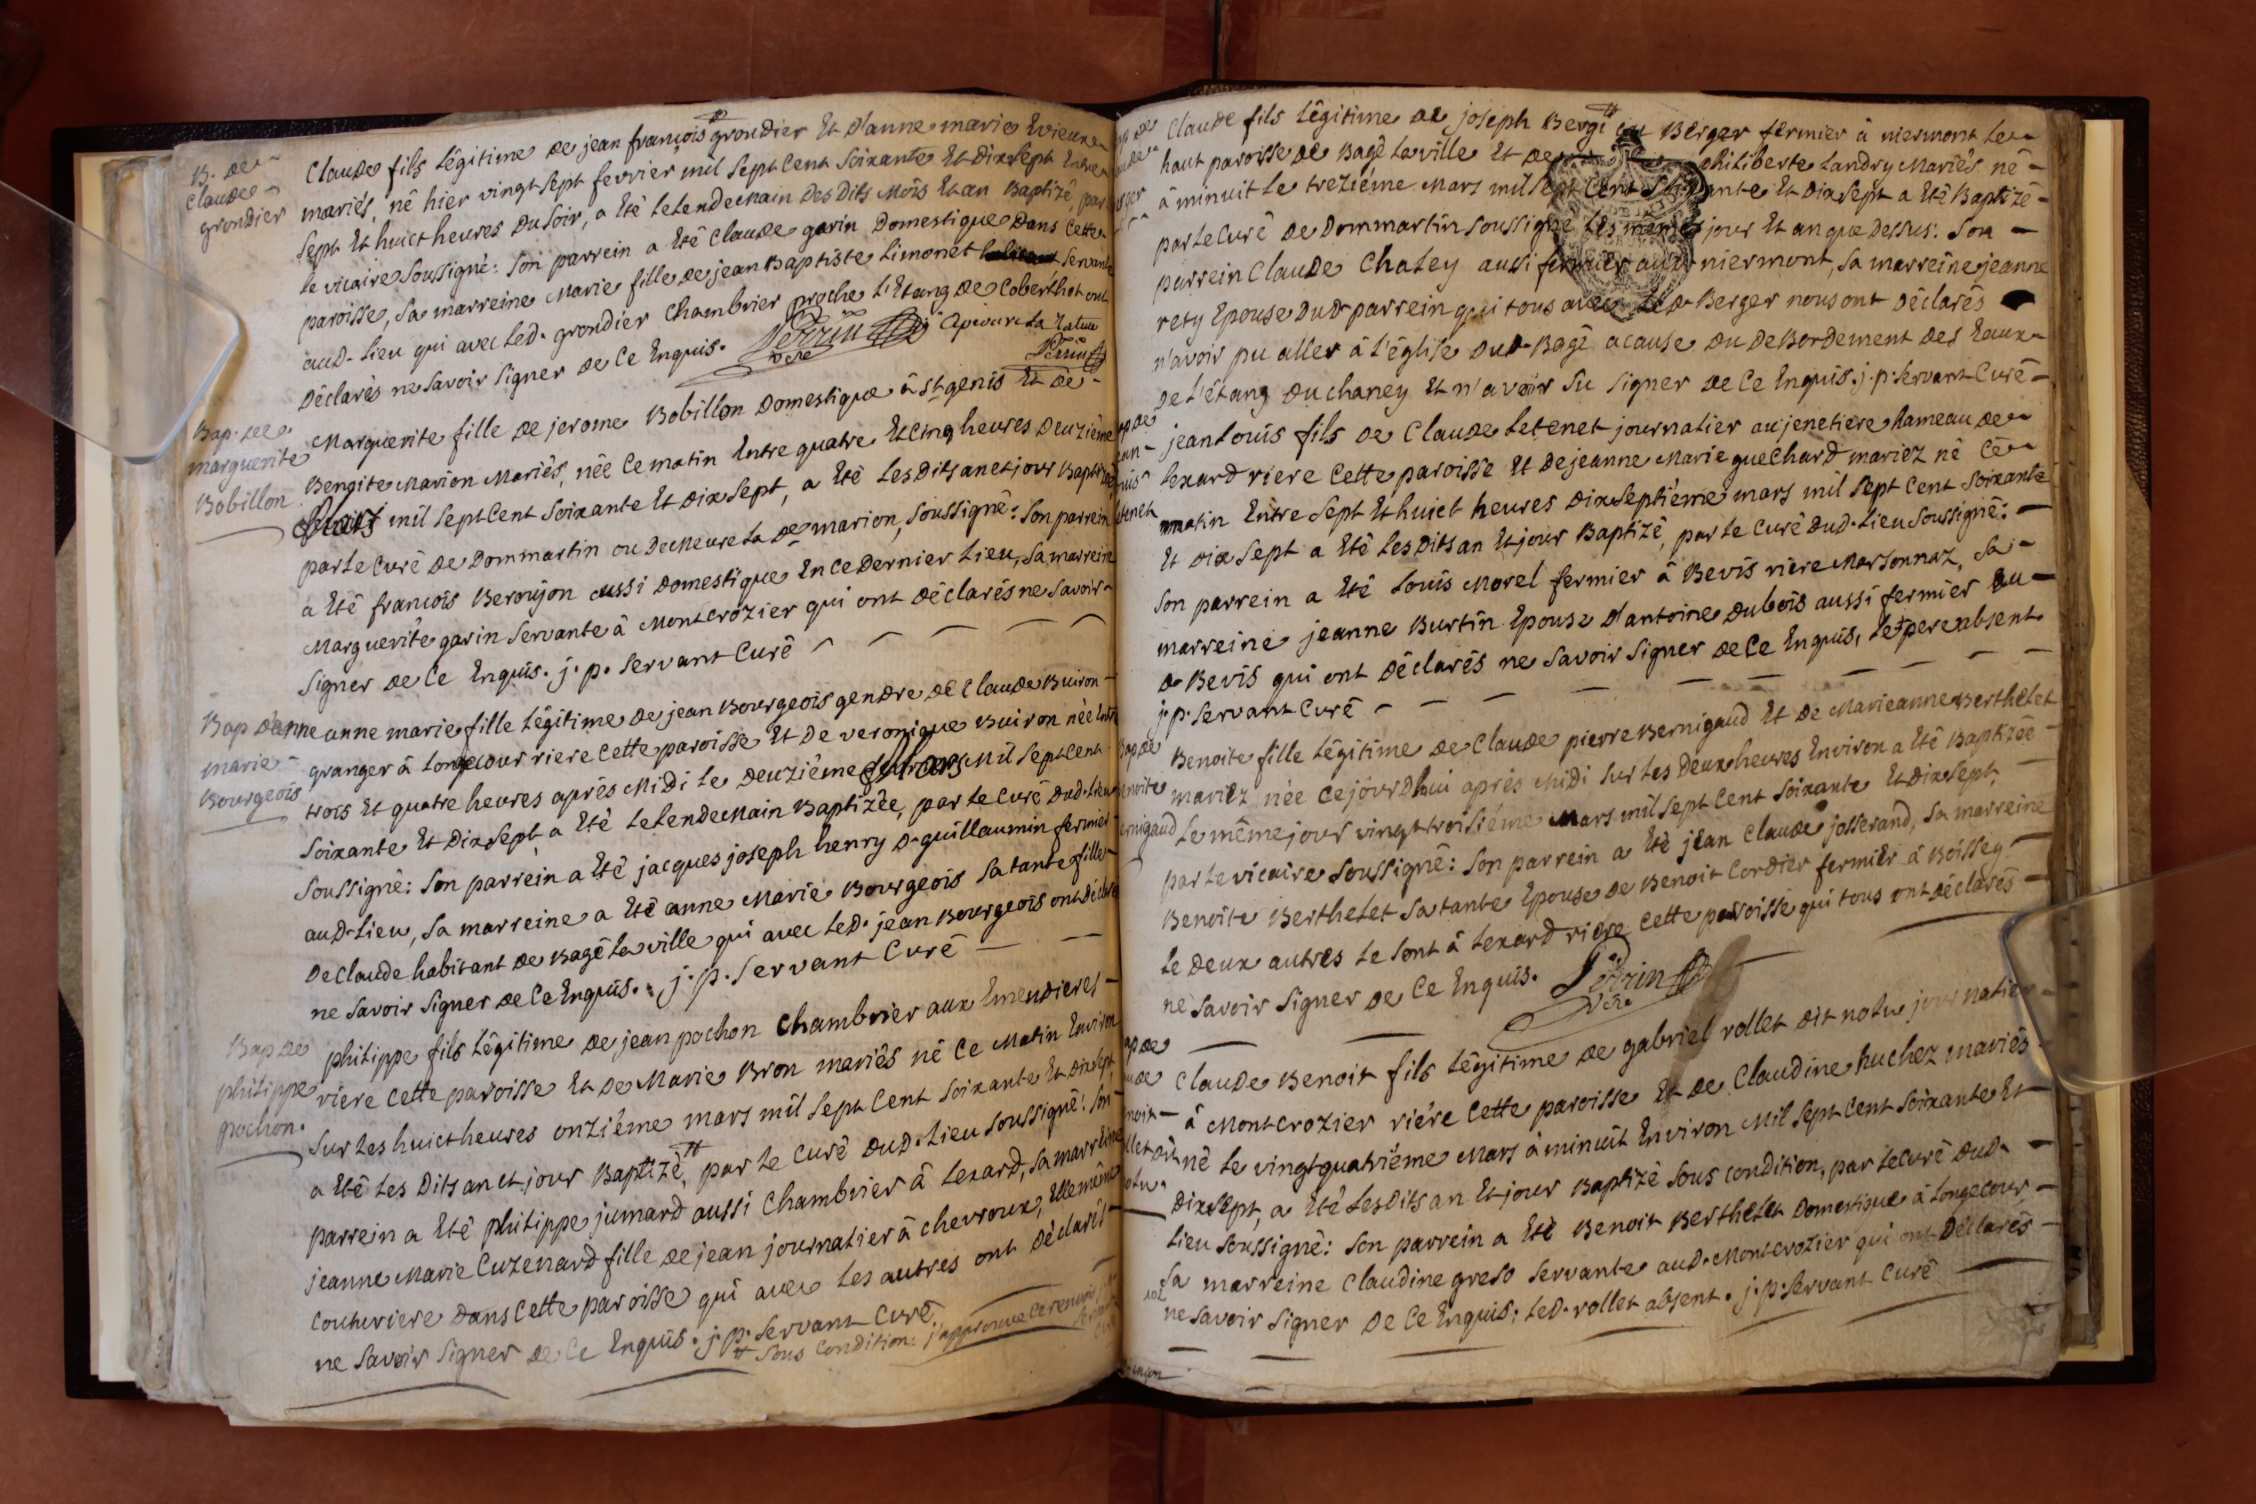 B. de
Claude
grondier
Claude fils légitime de jean françois grondier Et d'anne marie Evieux
mariés, né hier vingt sept fevrier mil sept Cent Soixante Et dix sept Entre
Sept Et huict heures du Soir, a Eté le lendemain des dits mois Et an Baptizé par
le vicaire Soussigné: Son parrein a Eté Claude garin Domestique dans Cette
paroisse, Sa marreine Marie fille de jean Baptiste Limonet Servante
aud. Lieu qui avec led. grondier Chambrier proche L'Etang de Coberthot ont
Déclarés ne Savoir Signer de Ce Enquis. Perrin vire
Perrin
Bap. de
marguerite
Bobillon
Marguerite fille de jerome Bobillon Domestique à st genis Et de
Benoite Marion Mariés, née Ce matin Entre quatre Et Cinq heures Deuzième
mars mil Sept Cent Soixante Et dix Sept, a Eté Les Dits an et jour Baptizée
par le Curé de Dommartin ou demeure La De marion, Soussigné: Son parrein
a Eté françois Beroujon aussi Domestique En Ce Dernier Lieu, Sa marreine
Marguerite garin Servante à Montcrozier qui ont déclarés ne Savoir
Signer de Ce Enquis. j. p. Servant Curé
Bap d'anne
marie
Bourgeois
anne marie fille Légitime de jean Bourgeois gendre de Claude Buiron
granger à Longecour riere Cette paroisse Et de veronique Buiron née Entre
trois Et quatre heures après Midi le deuzième mars Mil Sept Cent
Soixante Et Dix Sept, a Eté Le lendemain Baptizée, par le Curé dud. Lieu
Soussigné: Son parrein a Eté jacques joseph henry D. guillaumin fermier
aud. Lieu, Sa marreine a Eté anne Marie Bourgeois Sa tante fille
de Claude habitant de Bagé La ville qui avec Led. jean Bourgeois ont déclarés
ne Savoir Signer de Ce Enquis. j. p. Servant Curé
Bap de
philippe
pochon.
philippe fils Légitime de jean pochon Chambrier aux Emendieres
riere Cette paroisse Et de Marie Bron mariés né Ce Matin Environ
Sur Les huict heures onziéme mars mil Sept Cent Soixante Et dix Sept,
a Eté Les Dits an et jour Baptizé, par le Curé dud. Lieu Soussigné: Son
parrein a Eté philippe jumard aussi Chambrier à Lexard, Sa marreine
jeanne Marie Cuzenard fille de jean journalier à chevroux, Elle même
Couturiere dans Cette paroisse qui avec Les autres ont Déclarés
ne Savoir Signer de Ce Enquis. j. p. Servant Curé.
Sous Condition: j'approuve Ce renvoi
Claude fils Légitime de joseph Bergi ou Berger fermier à niermont Le
haut paroisse de Bagé La ville Et de philiberte Landry Mariés né
à minuit Le treziéme Mars mil Sept Cent Soixante Et dix Sept a Eté Baptizé
par Le Curé de Dommartin Soussigné Les mêmes jour Et an que dessus: Son
parrein Claude Chatey aussi fermier aud. niermont, Sa marreine jeanne
rety Epouse dud. parrein qui tous avec Led. Berger nous ont Déclarés
n'avoir pu aller à L'église dud. Bagé a cause du Debordement des Eaux
de L'étang du chaney Et n'avoir Su Signer de Ce Enquis. j. p. Servant Curé
jean Louis fils de Claude Letenet journalier au jenetiere hameau de
Lexard riere Cette paroisse Et de jeanne Marie guechard mariez né Ce
matin Entre Sept Et huict heures dix Septiéme mars mil Sept Cent Soixante
Et dix Sept a Eté Les Dits an Et jour Baptizé, par Le Curé dud. Lieu Soussigné:
Son parrein a Eté Louis Morel fermier à Bevis riere Marsonnaz, Sa
marreine jeanne Burtin Epouse d'antoine dubois aussi fermier au
d. Bevis qui ont Déclarés ne Savoir Signer de Ce Enquis, Led. pere absent
j. p. Servant Curé
Benoite fille Légitime de Claude pierre Bernigaud Et de Marieanne Berthelet
mariez née Ce jourdhui après Midi Sur Les deux heures Environ a Eté Baptizée
Le même jour vingt troisiéme Mars mil Sept Cent Soixante Et dix Sept
par Le vicaire Soussigné: Son parrein a Eté jean Claude josserand, Sa marreine
Benoite Berthelet Sa tante Epouse de Benoit Cordier fermier à Boissey
Le deux autres Le Sont à Lexard riere Cette paroisse qui tous ont déclarés
ne Savoir Signer de Ce Enquis. Perrin vire
Claude Benoit fils Légitime de gabriel rollet dit notu journalier
à Montcrozier riére Cette paroisse Et de Claudine huchez mariés
né Le vingt quatriéme Mars à minuit Environ Mil Sept Cent Soixante Et
dix Sept, a Eté Les Dits an Et jour Baptizé Sous Condition, par Le Curé dud.
Lieu Soussigné: Son parrein a Eté Benoit Berthelet Domestique à Longecour,
Sa marreine Claudine greso Servante aud. Montcrozier qui ont Déclarés
ne Savoir Signer de Ce Enquis; Led. rollet absent. j. p. Servant Curé